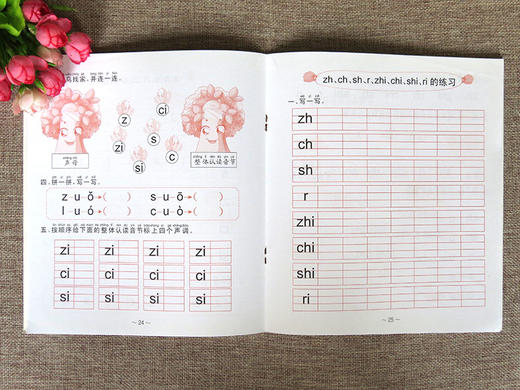 鸟找家,并连一连。
z
ci
s
zi
c
si
声母
整体认读音节
四、拼一拼,写一写。
z—uǒ→(　) s—uō→(　)
l—uó→(　) c—uò→(　)
五、按顺序给下面的整体认读音节标上四个声调。
zi zi zi zi
ci ci ci ci
si si si si
~ 24 ~
zh、ch、sh、r、zhi、chi、shi、ri 的练习
一、写一写。
zh
ch
sh
r
zhi
chi
shi
ri
~ 25 ~